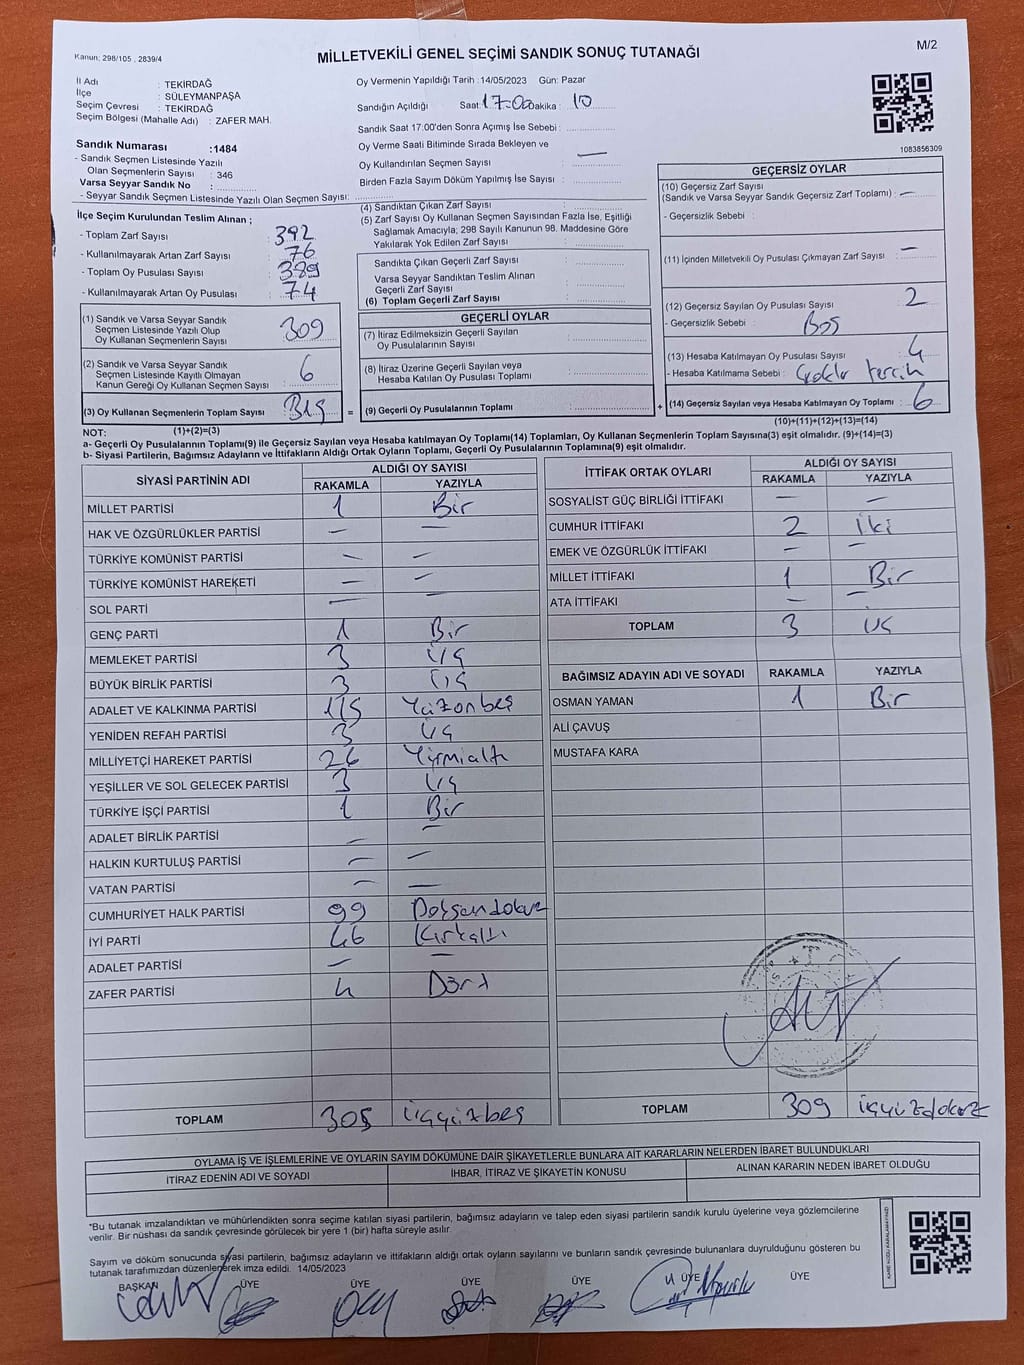 Kanun; 298/105 , 2839/4
MİLLETVEKİLİ GENEL SEÇİMİ SANDIK SONUÇ TUTANAĞI
M/2
İl Adı : TEKİRDAĞ
İlçe : SÜLEYMANPAŞA
Seçim Çevresi : TEKİRDAĞ
Seçim Bölgesi (Mahalle Adı) : ZAFER MAH.
Sandık Numarası :1484
- Sandık Seçmen Listesinde Yazılı
Olan Seçmenlerin Sayısı : 346
Varsa Seyyar Sandık No :
- Seyyar Sandık Seçmen Listesinde Yazılı Olan Seçmen Sayısı:
Oy Vermenin Yapıldığı Tarih :14/05/2023 Gün: Pazar
Sandığın Açıldığı Saat: 17:00 Dakika : 10
Sandık Saat 17:00'den Sonra Açımış İse Sebebi :
Oy Verme Saati Bitiminde Sırada Bekleyen ve
Oy Kullandırılan Seçmen Sayısı : —
Birden Fazla Sayım Döküm Yapılmış İse Sayısı :
1083856309
İlçe Seçim Kurulundan Teslim Alınan ;
- Toplam Zarf Sayısı : 392
- Kullanılmayarak Artan Zarf Sayısı : 76
- Toplam Oy Pusulası Sayısı : 389
- Kullanılmayarak Artan Oy Pusulası : 74
(1) Sandık ve Varsa Seyyar Sandık
Seçmen Listesinde Yazılı Olup
Oy Kullanan Seçmenlerin Sayısı : 309
(2) Sandık ve Varsa Seyyar Sandık
Seçmen Listesinde Kayıtlı Olmayan
Kanun Gereği Oy Kullanan Seçmen Sayısı : 6
(3) Oy Kullanan Seçmenlerin Toplam Sayısı : 315 =
(1)+(2)=(3)
(4) Sandıktan Çıkan Zarf Sayısı :
(5) Zarf Sayısı Oy Kullanan Seçmen Sayısından Fazla İse, Eşitliği
Sağlamak Amacıyla; 298 Sayılı Kanunun 98. Maddesine Göre
Yakılarak Yok Edilen Zarf Sayısı :
Sandıkta Çıkan Geçerli Zarf Sayısı :
Varsa Seyyar Sandıktan Teslim Alınan
Geçerli Zarf Sayısı :
(6) Toplam Geçerli Zarf Sayısı :
GEÇERLİ OYLAR
(7) İtiraz Edilmeksizin Geçerli Sayılan
Oy Pusulalarının Sayısı :
(8) İtiraz Üzerine Geçerli Sayılan veya
Hesaba Katılan Oy Pusulası Toplamı :
(9) Geçerli Oy Pusulalarının Toplamı : +
GEÇERSİZ OYLAR
(10) Geçersiz Zarf Sayısı
(Sandık ve Varsa Seyyar Sandık Geçersiz Zarf Toplamı) : —
- Geçersizlik Sebebi :
(11) İçinden Milletvekili Oy Pusulası Çıkmayan Zarf Sayısı : —
(12) Geçersiz Sayılan Oy Pusulası Sayısı : 2
- Geçersizlik Sebebi : Boş
(13) Hesaba Katılmayan Oy Pusulası Sayısı : 4
- Hesaba Katılmama Sebebi : Çoklu tercih
(14) Geçersiz Sayılan veya Hesaba Katılmayan Oy Toplamı : 6
(10)+(11)+(12)+(13)=(14)
NOT:
a- Geçerli Oy Pusulalarının Toplamı(9) ile Geçersiz Sayılan veya Hesaba katılmayan Oy Toplamı(14) Toplamları, Oy Kullanan Seçmenlerin Toplam Sayısına(3) eşit olmalıdır. (9)+(14)=(3)
b- Siyasi Partilerin, Bağımsız Adayların ve İttifakların Aldığı Ortak Oyların Toplamı, Geçerli Oy Pusulalarının Toplamına(9) eşit olmalıdır.
SİYASİ PARTİNİN ADI ALDIĞI OY SAYISI
RAKAMLA YAZIYLA
MİLLET PARTİSİ 1 Bir
HAK VE ÖZGÜRLÜKLER PARTİSİ — —
TÜRKİYE KOMÜNİST PARTİSİ — —
TÜRKİYE KOMÜNİST HAREKETİ — —
SOL PARTİ — —
GENÇ PARTİ 1 Bir
MEMLEKET PARTİSİ 3 Üç
BÜYÜK BİRLİK PARTİSİ 3 Üç
ADALET VE KALKINMA PARTİSİ 115 Yüzonbeş
YENİDEN REFAH PARTİSİ 3 Üç
MİLLİYETÇİ HAREKET PARTİSİ 26 Yirmialtı
YEŞİLLER VE SOL GELECEK PARTİSİ 3 Üç
TÜRKİYE İŞÇİ PARTİSİ 1 Bir
ADALET BİRLİK PARTİSİ — —
HALKIN KURTULUŞ PARTİSİ — —
VATAN PARTİSİ — —
CUMHURİYET HALK PARTİSİ 99 Doksandokuz
İYİ PARTİ 46 Kırkaltı
ADALET PARTİSİ — —
ZAFER PARTİSİ 4 Dört
TOPLAM 305 üçyüzbeş
İTTİFAK ORTAK OYLARI ALDIĞI OY SAYISI
RAKAMLA YAZIYLA
SOSYALİST GÜÇ BİRLİĞİ İTTİFAKI — —
CUMHUR İTTİFAKI 2 iki
EMEK VE ÖZGÜRLÜK İTTİFAKI — —
MİLLET İTTİFAKI 1 Bir
ATA İTTİFAKI — —
TOPLAM 3 üç
BAĞIMSIZ ADAYIN ADI VE SOYADI RAKAMLA YAZIYLA
OSMAN YAMAN 1 Bir
ALİ ÇAVUŞ
MUSTAFA KARA
TOPLAM 309 üçyüzdokuz
OYLAMA İŞ VE İŞLEMLERİNE VE OYLARIN SAYIM DÖKÜMÜNE DAİR ŞİKAYETLERLE BUNLARA AİT KARARLARIN NELERDEN İBARET BULUNDUKLARI
İTİRAZ EDENİN ADI VE SOYADI İHBAR, İTİRAZ VE ŞİKAYETİN KONUSU ALINAN KARARIN NEDEN İBARET OLDUĞU
*Bu tutanak imzalandıktan ve mühürlendikten sonra seçime katılan siyasi partilerin, bağımsız adayların ve talep eden siyasi partilerin sandık kurulu üyelerine veya gözlemcilerine
verilir. Bir nüshası da sandık çevresinde görülecek bir yere 1 (bir) hafta süreyle asılır.
Sayım ve döküm sonucunda siyasi partilerin, bağımsız adayların ve ittifakların aldığı ortak oyların sayılarını ve bunların sandık çevresinde bulunanlara duyrulduğunu gösteren bu
tutanak tarafımızdan düzenlenerek imza edildi. 14/05/2023
BAŞKAN ÜYE ÜYE ÜYE ÜYE ÜYE ÜYE